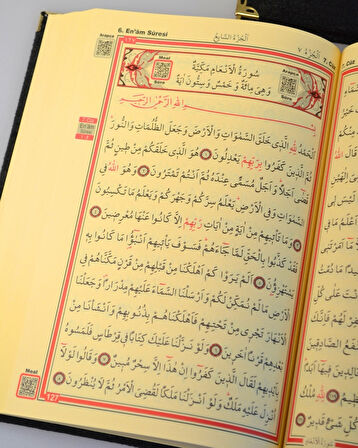 6. En'âm Sûresi
اَلْجُزْءُ السَّابِعُ
Arapça
Meal
Sûre
سُورَةُ الْاَنْعَامِ مَكِّيَّةٌ
وَهِيَ مِائَةٌ وَخَمْسٌ وَسِتُّونَ اٰيَةً
بِسْمِ اللّٰهِ الرَّحْمٰنِ الرَّحِيمِ
اَلْحَمْدُ لِلّٰهِ الَّذِي خَلَقَ السَّمٰوَاتِ وَالْاَرْضَ وَجَعَلَ الظُّلُمَاتِ وَالنُّورَ
ثُمَّ الَّذِينَ كَفَرُوا بِرَبِّهِمْ يَعْدِلُونَ هُوَ الَّذِي خَلَقَكُمْ مِنْ طِينٍ ثُمَّ
قَضٰى اَجَلًا وَاَجَلٌ مُسَمًّى عِنْدَهُ ثُمَّ اَنْتُمْ تَمْتَرُونَ وَهُوَ اللّٰهُ فِي
السَّمٰوَاتِ وَفِي الْاَرْضِ يَعْلَمُ سِرَّكُمْ وَجَهْرَكُمْ وَيَعْلَمُ مَا تَكْسِبُونَ
وَمَا تَأْتِيهِمْ مِنْ اٰيَةٍ مِنْ اٰيَاتِ رَبِّهِمْ اِلَّا كَانُوا عَنْهَا مُعْرِضِينَ
فَقَدْ كَذَّبُوا بِالْحَقِّ لَمَّا جَاءَهُمْ فَسَوْفَ يَأْتِيهِمْ اَنْبٰٓؤُا مَا كَانُوا بِهِ
يَسْتَهْزِؤُنَ اَلَمْ يَرَوْا كَمْ اَهْلَكْنَا مِنْ قَبْلِهِمْ مِنْ قَرْنٍ مَكَّنَّاهُمْ فِي
الْاَرْضِ مَا لَمْ نُمَكِّنْ لَكُمْ وَاَرْسَلْنَا السَّمَاءَ عَلَيْهِمْ مِدْرَارًا وَجَعَلْنَا
الْاَنْهَارَ تَجْرِي مِنْ تَحْتِهِمْ فَاَهْلَكْنَاهُمْ بِذُنُوبِهِمْ وَاَنْشَأْنَا مِنْ
بَعْدِهِمْ قَرْنًا اٰخَرِينَ وَلَوْ نَزَّلْنَا عَلَيْكَ كِتَابًا فِي قِرْطَاسٍ فَلَمَسُوهُ
بِاَيْدِيهِمْ لَقَالَ الَّذِينَ كَفَرُوا اِنْ هٰذَا اِلَّا سِحْرٌ مُبِينٌ وَقَالُوا لَوْلَا
اُنْزِلَ عَلَيْهِ مَلَكٌ وَلَوْ اَنْزَلْنَا مَلَكًا لَقُضِيَ الْاَمْرُ ثُمَّ لَا يُنْظَرُونَ
Meal
127
اَلْجُزْءُ ٧
7. Cüz